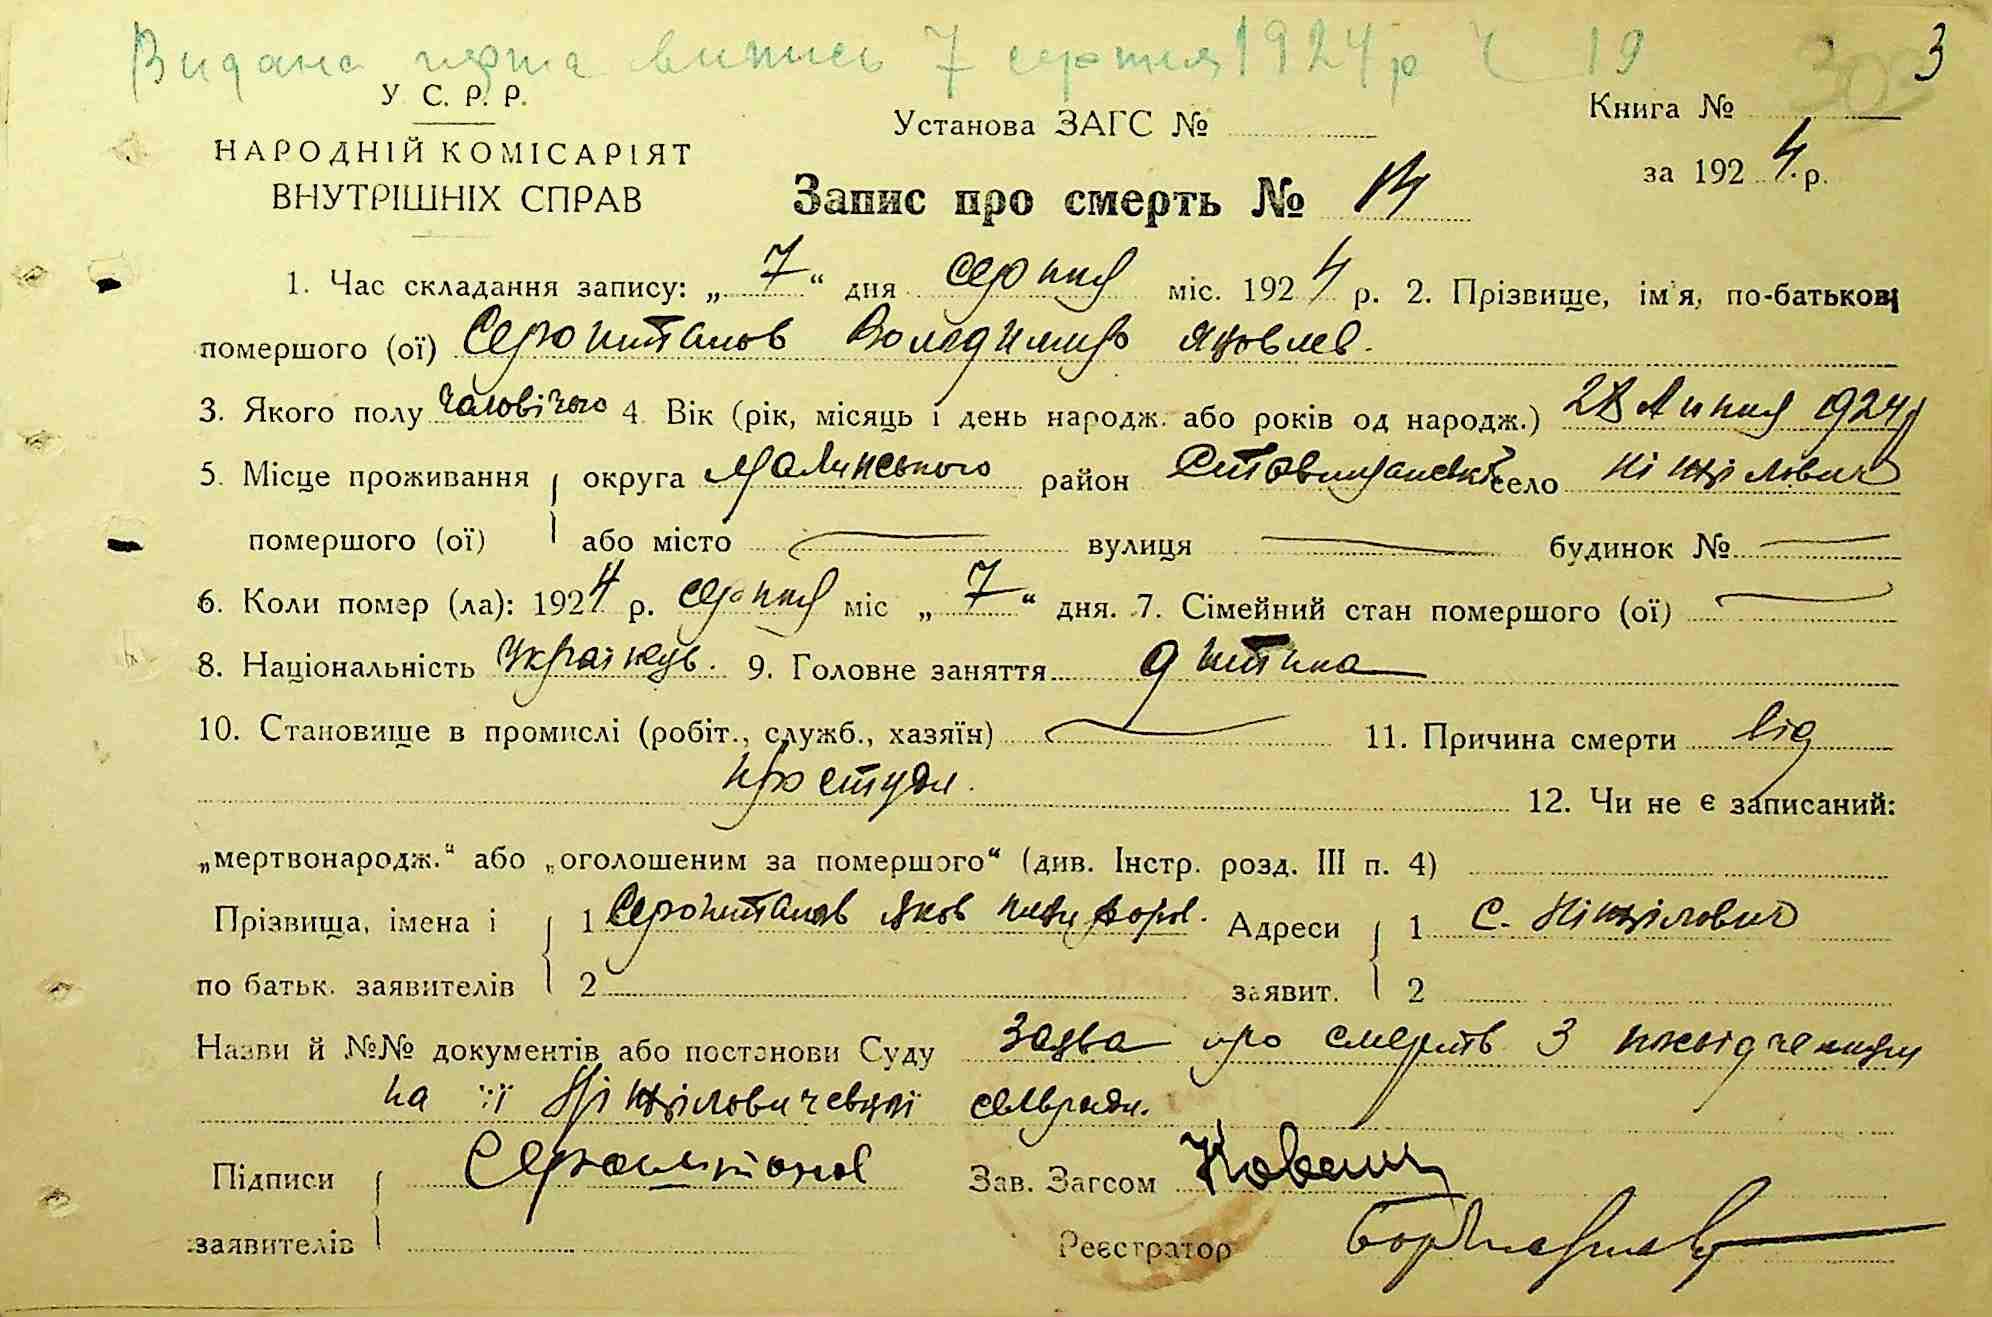 Видана перша випись 7 серпня 1924 р Ч 19
3
У. С. Р. Р.
НАРОДНІЙ КОМІСАРІЯТ
ВНУТРІШНІХ СПРАВ
Установа ЗАГС №
Книга №
за 1924 р.
Запис про смерть №
1. Час складання запису: „7“ дня серпня міс. 1924 р. 2. Прізвище, ім'я, по-батькові
помершого (ої) Сероштанов Володимир Яковлев.
3. Якого полу чоловічого 4. Вік (рік, місяць і день народж. або років од народж.) 28 Липня 1924 р
5. Місце проживання округа Малинського район село
помершого (ої) або місто вулиця будинок №
6. Коли помер (ла): 1924 р. серпня міс „7“ дня. 7. Сімейний стан помершого (ої)
8. Національність Українець. 9. Головне заняття дитина
10. Становище в промислі (робіт., служб., хазяїн) 11. Причина смерти від
простуди.
12. Чи не є записаний:
„мертвонародж.“ або „оголошеним за помершого“ (див. Інстр. розд. III п. 4)
Прізвища, імена і 1 Сероштанов Яков Адреси 1 с.
по батьк. заявителів 2 заявит. 2
Назви й №№ документів або постанови Суду Заява про смерть з
на її сельради.
Підписи Сероштанов Зав. Загсом
заявителів Реєстратор